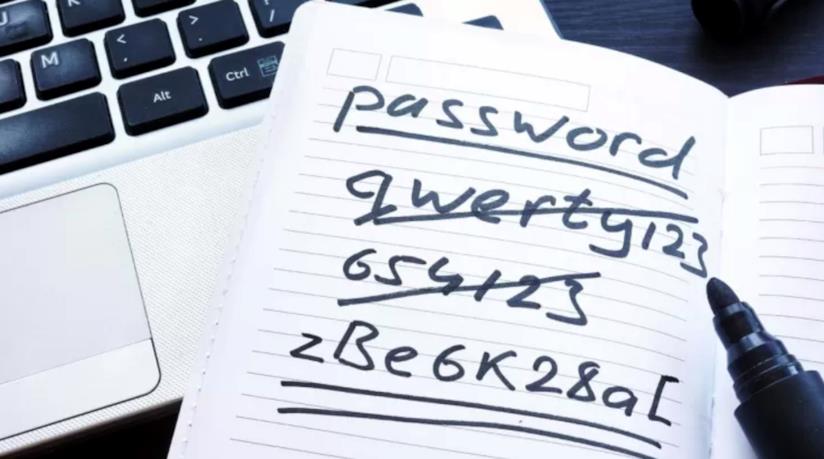 U K < , > . ? /
M
Alt Ctrl
password
qwerty123
654123
zBe6K28a[